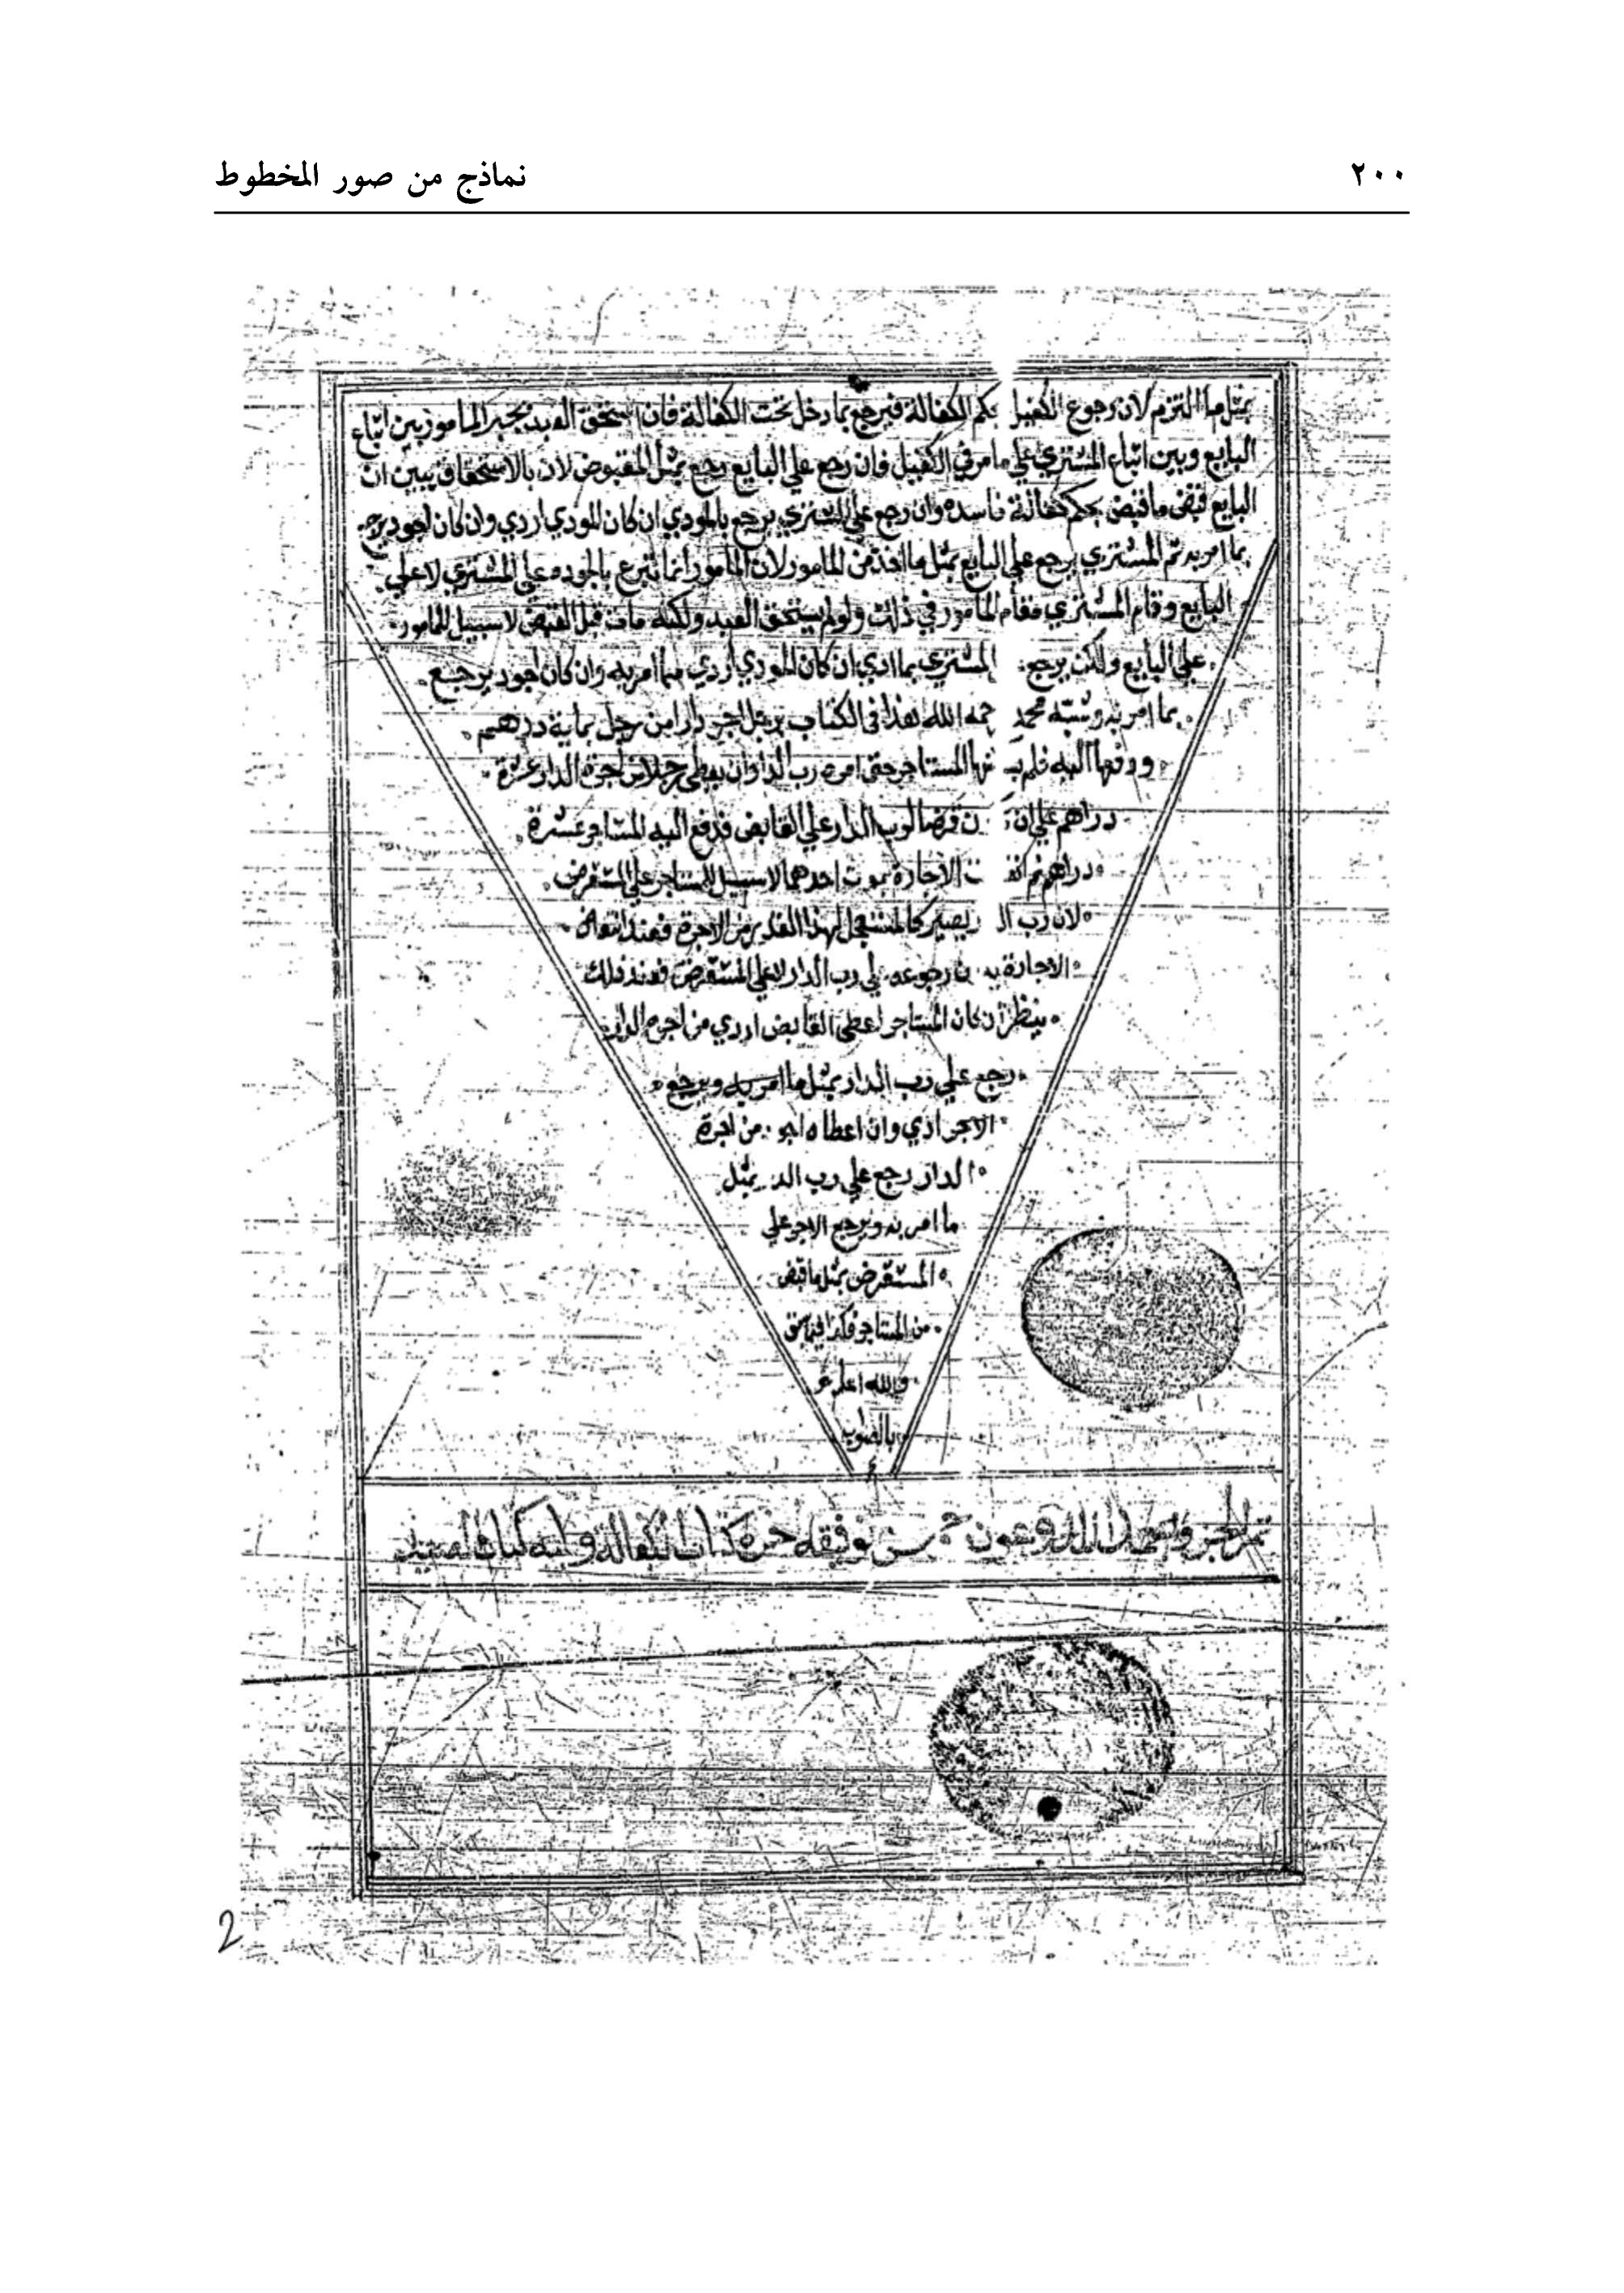 ٢٠٠
نماذج من صور المخطوط
بمثل ما التزم لان رجوع الكفيل بحكم الكفالة فيرجع بما دخل تحت الكفالة فان استحق العبد يخير المامور بين اتباع
البايع وبين اتباع المشتري علي ما مر في الكفيل فان رجع علي البايع رجع بمثل المقبوض لان بالاستحقاق يبين ان
البايع قبض ما قبض بحكم كفالة فاسده وان رجع علي المشتري يرجع بالمودي ان كان المودي اردي وان كان اجود يرجع
بما امر به ثم المشتري يرجع علي البايع بمثل ما اخذ من المامور لان المامور انما تبرع بالجوده علي المشتري لا علي
البايع وقام المشتري مقام المامور في ذلك ولو لم يستحق العبد ولكنه مات قبل القبض لا سبيل للمامور
علي البايع ولكن يرجع المشتري بما ادي ان كان المودي اردي مما امر به وان كان اجود يرجع
بما امر به وشبه محمد حمه الله هذا في الكتاب برجل اجر دارا من رجل بماية درهم
ودفعها اليه فلم المستاجر حتي امره رب الدار ان يعطي رجلا من اجرة الدار عشرة
دراهم علي ان ن قرضا لرب الدار علي القابض فدفع اليه المستاجر عشرة
دراهم ثم ت الاجارة بموت احدهما لا سبيل للمستاجر علي المستقرض
لان رب ال يصير كالمستعجل لهذا القدر من الاجرة فعند انتقاض
الاجارة ن رجوعه لي رب الدار لا علي المستقرض فعند ذلك
ينظر ان كان المستاجر اعطي القابض اردي من اجره الدار
رجع علي رب الدار بمثل ما امر به ويرجع
الاجر ادي وان اعطاه اجو من اجرة
الدار رجع علي رب الد بمثل
ما امر به ويرجع الاجر علي
المستقرض بمثل ما قبض
من المستاجر فكذا فيما
والله اعلم
بالصواب
تم الجزو الله وعون حسن توفيقه كتاب الكفالة ويليه كتاب الصيد
2